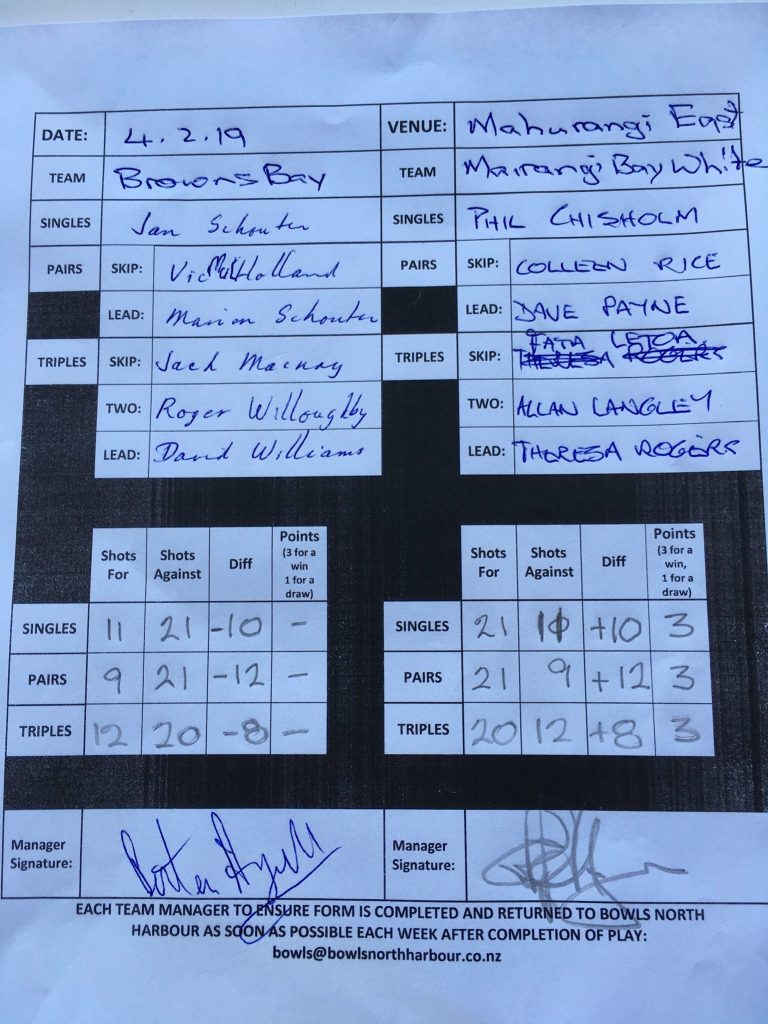 DATE: 4.2.19 VENUE: Mahurangi East
TEAM Browns Bay TEAM Mairangi Bay White
SINGLES Jan Schouten SINGLES PHIL CHISHOLM
PAIRS SKIP: Vic Holland PAIRS SKIP: COLLEEN RICE
LEAD: Marion Schouten LEAD: DAVE PAYNE
TRIPLES SKIP: Jack TRIPLES SKIP: LETOA
THERESA ROGERS
TWO: Roger Willoughby TWO: ALLAN LANGLEY
LEAD: David Williams LEAD: THERESA ROGERS
Shots For Shots Against Diff Points (3 for a win 1 for a draw) Shots For Shots Against Diff Points (3 for a win, 1 for a draw)
SINGLES 11 21 -10 - SINGLES 21 11 +10 3
PAIRS 9 21 -12 - PAIRS 21 9 +12 3
TRIPLES 12 20 -8 - TRIPLES 20 12 +8 3
Manager Signature: Manager Signature:
EACH TEAM MANAGER TO ENSURE FORM IS COMPLETED AND RETURNED TO BOWLS NORTH
HARBOUR AS SOON AS POSSIBLE EACH WEEK AFTER COMPLETION OF PLAY:
bowls@bowlsnorthharbour.co.nz